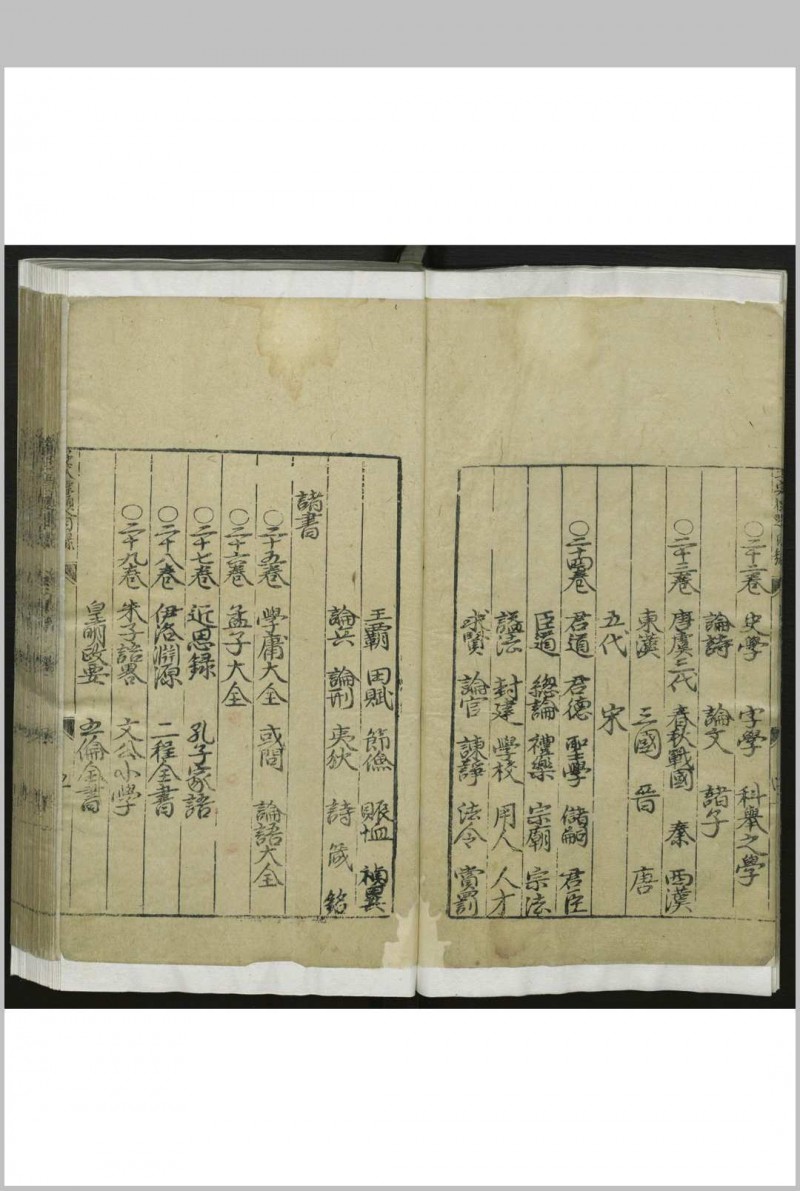 ○二十二卷 史學 字學 科舉之學
論詩 論文 諸子
○二十三卷 唐虞三代 春秋戰國 秦 西漢
東漢 三國 晉 唐
五代 宋
○二十四卷 君道 君德 聖學 儲嗣 君臣
臣道 總論 禮樂 宗廟 宗法
謚法 封建 學校 用人 人才
求賢 論官 諫諍 法令 賞罰
王霸 田賦 節儉 賑恤 禎異
論兵 論刑 夷狄 詩 箴 銘
諸書
○二十五卷 學庸大全 或問 論語大全
○二十六卷 孟子大全
○二十七卷 近思録 孔子家語
○二十八卷 伊洛淵源 二程全書
○二十九卷 朱子語畧 文公小學
皇明政要 五倫全書